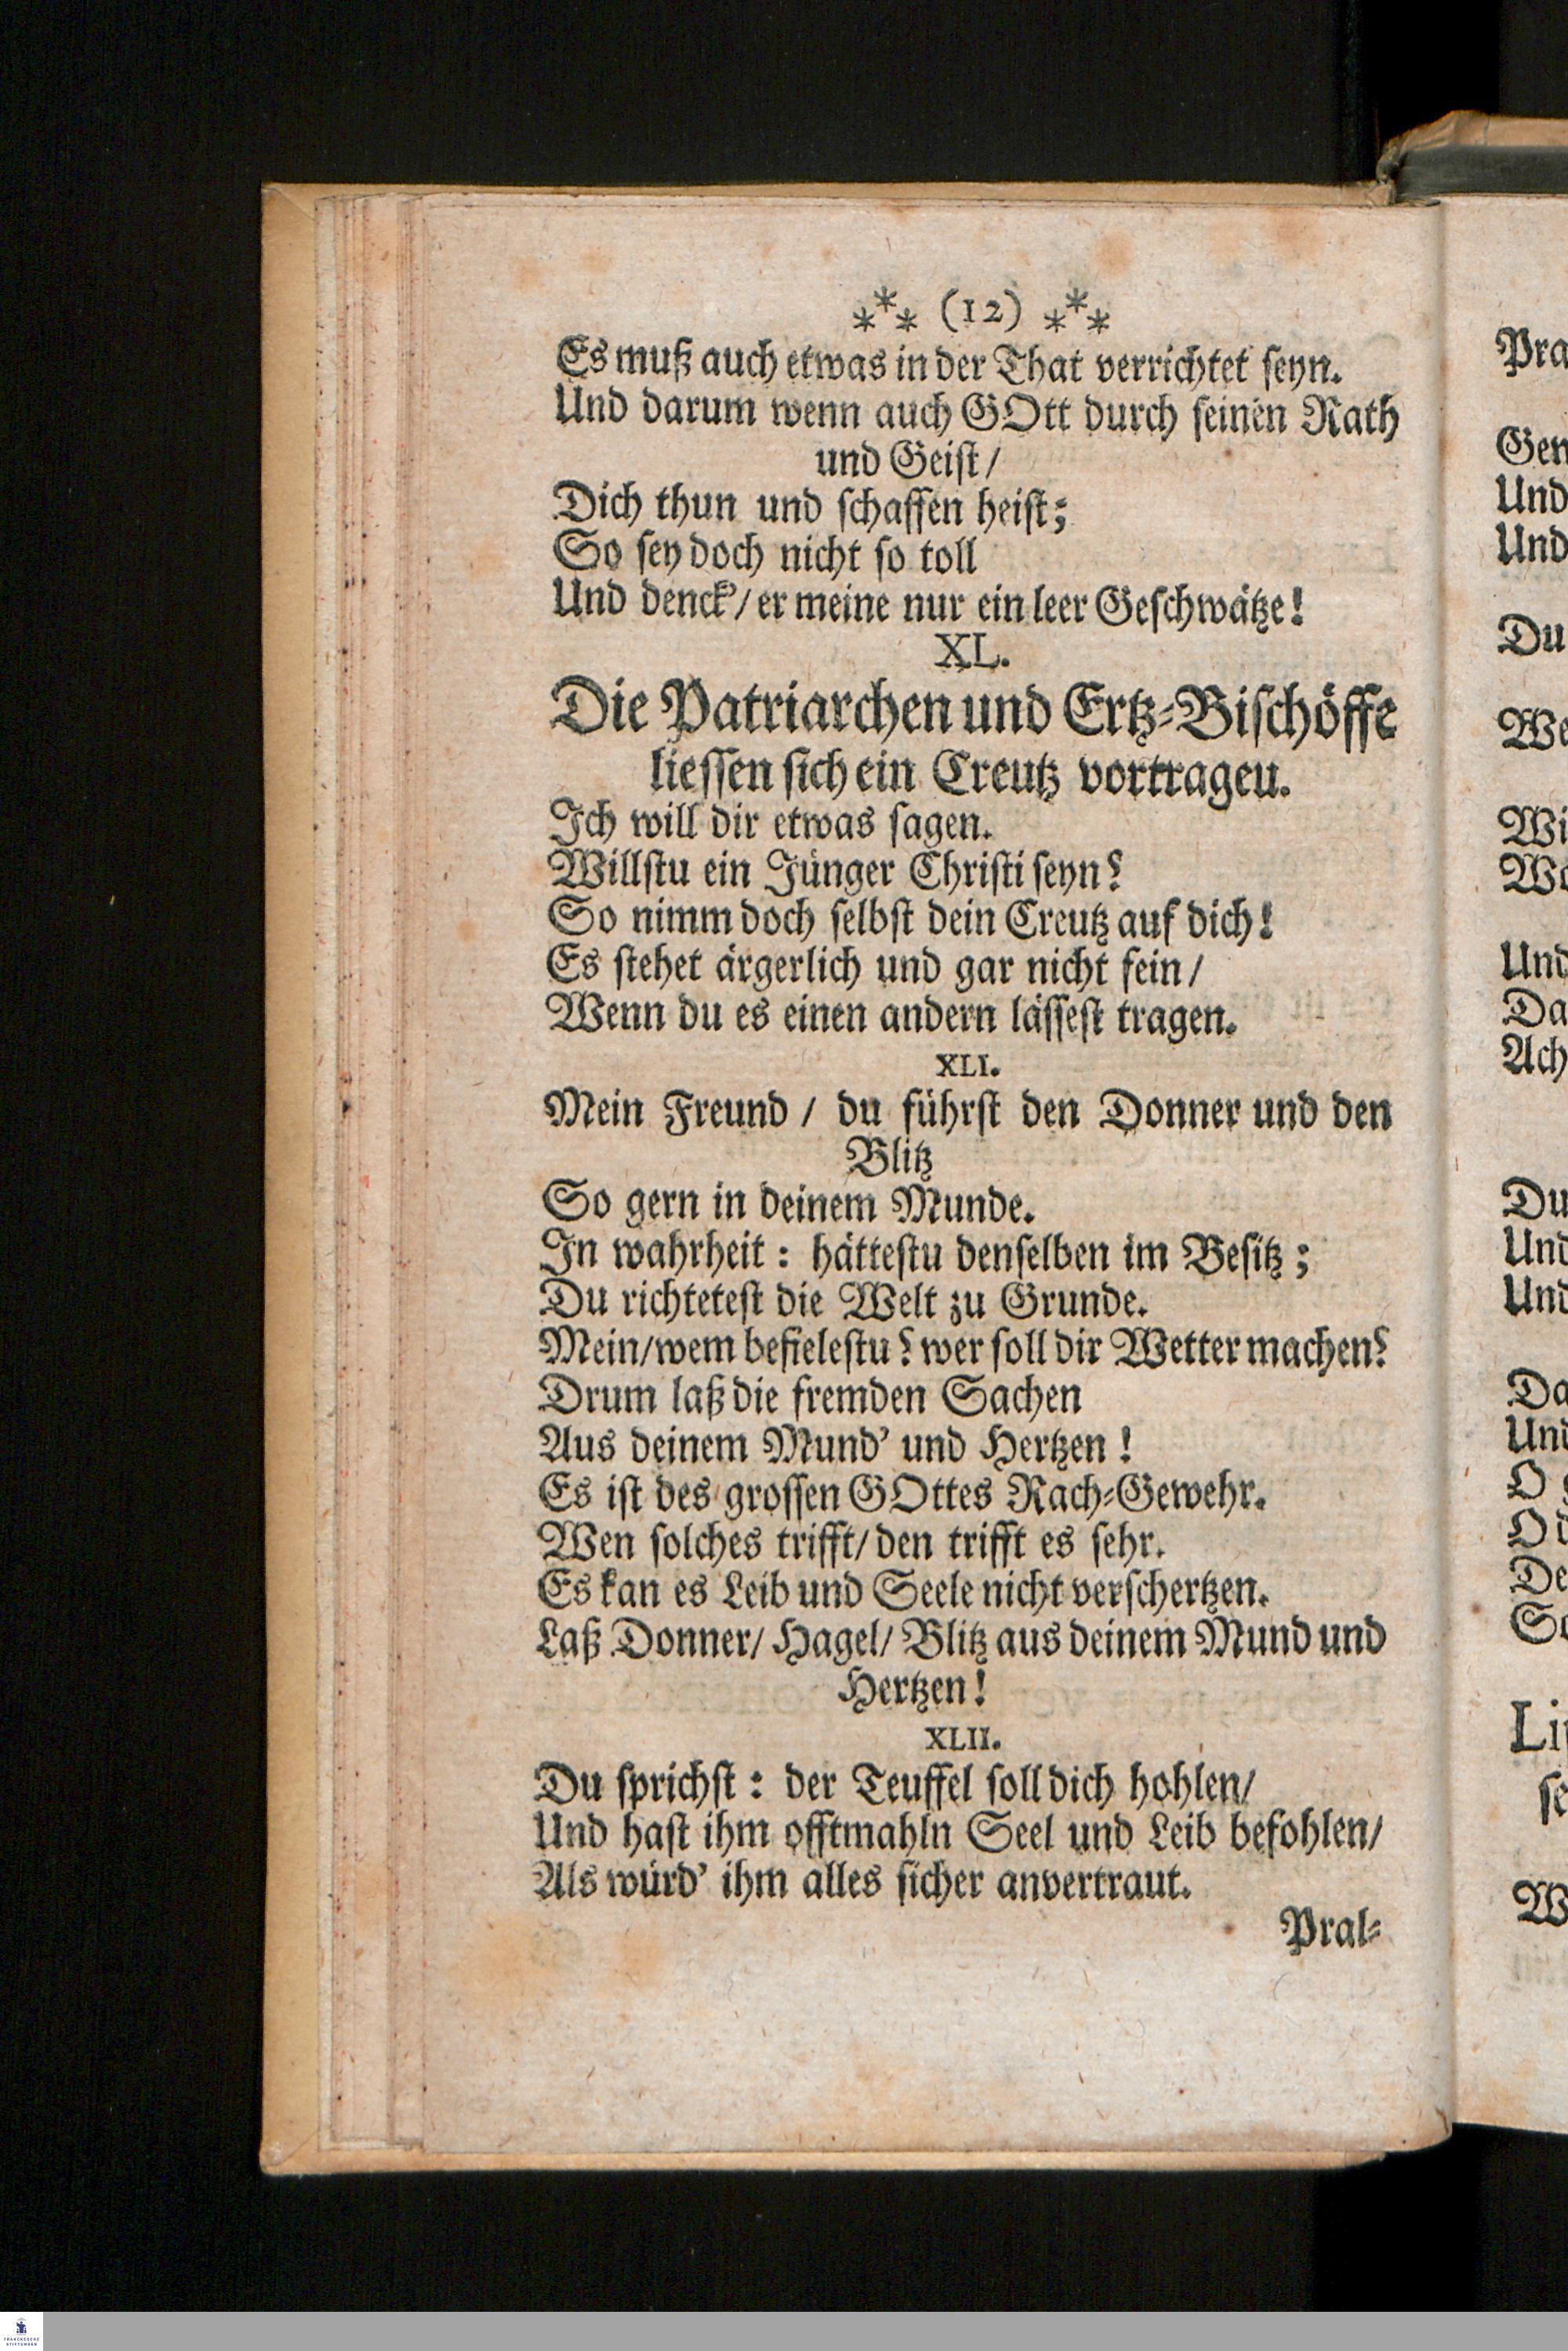 ⁂ (12) ⁂
Es muß auch etwas in der That verrichtet seyn.
Und darum wenn auch GOtt durch seinen Rath
und Geist /
Dich thun und schaffen heist;
So sey doch nicht so toll
Und denck' / er meine nur ein leer Geschwätze!
XL.
Die Patriarchen und Ertz-Bischöffe
liessen sich ein Creutz vortrageu.
Ich will dir etwas sagen.
Willstu ein Jünger Christi seyn?
So nimm doch selbst dein Creutz auf dich!
Es stehet ärgerlich und gar nicht fein /
Wenn du es einen andern lässest tragen.
XLI.
Mein Freund / du führst den Donner und den
Blitz
So gern in deinem Munde.
In wahrheit : hättestu denselben im Besitz ;
Du richtetest die Welt zu Grunde.
Mein/wem befielestu? wer soll dir Wetter machen?
Drum laß die fremden Sachen
Aus deinem Mund' und Hertzen !
Es ist des grossen GOttes Rach-Gewehr.
Wen solches trifft/ den trifft es sehr.
Es kan es Leib und Seele nicht verschertzen.
Laß Donner/ Hagel/ Blitz aus deinem Mund und
Hertzen!
XLII.
Du sprichst : der Teuffel soll dich hohlen/
Und hast ihm offtmahln Seel und Leib befohlen/
Als würd' ihm alles sicher anvertraut.
Pral-
Pra
Gen
Und
Und
Du
We
Wi
Und
Da
Ach
Du
Und
Und
Da
Und
O
O
De
So
Li
se
W
FRANCKESCHE
STIFTUNGEN